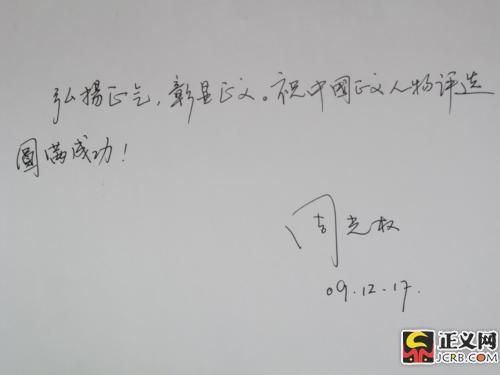 弘揚正气，彰显正义。祝中国正义人物评选
圆满成功！
周光权
09.12.17.
正义网
JCRB.COM